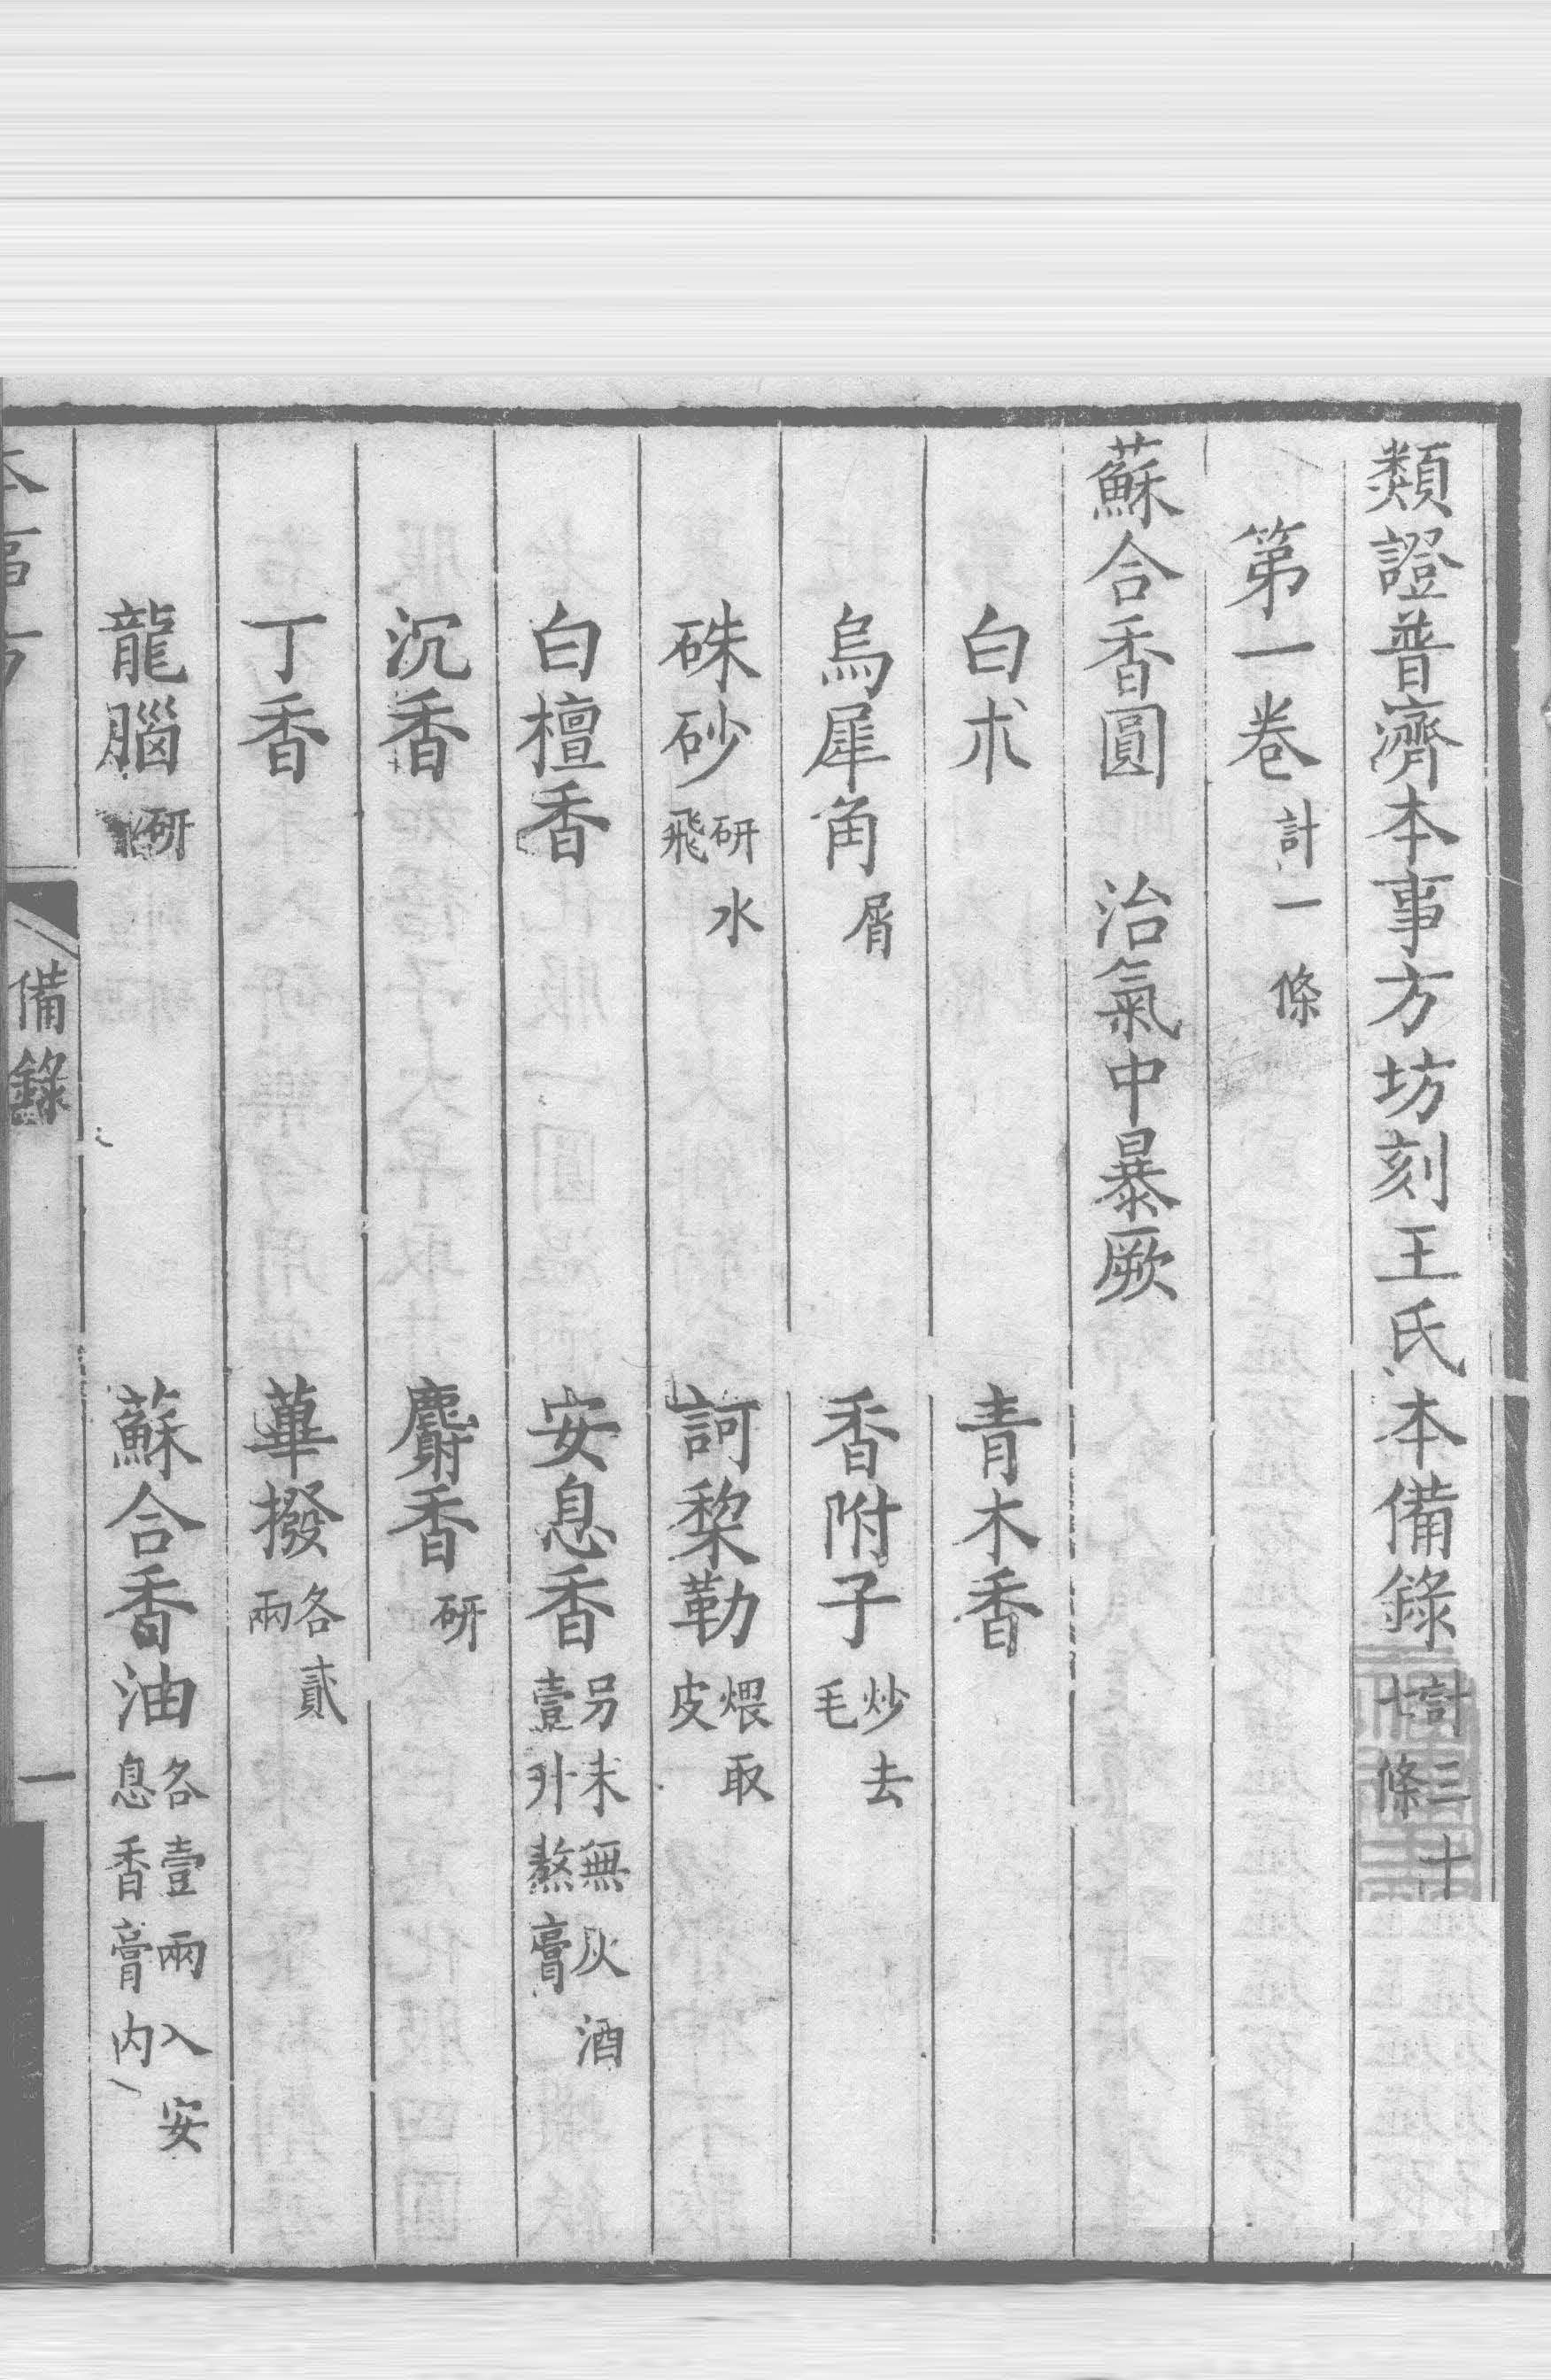 類證普濟本事方坊刻王氏本備錄計三十七條
第一卷計一條
蘇合香圓 治氣中暴厥
白朮 青木香
烏犀角屑 香附子炒去毛
硃砂研水飛 訶棃勒煨取皮
白檀香 安息香另末無灰酒壹升熬膏
沉香 麝香研
丁香 蓽撥各貳兩
龍腦研 蘇合香油各壹兩入安息香膏内
本事方
備錄
一